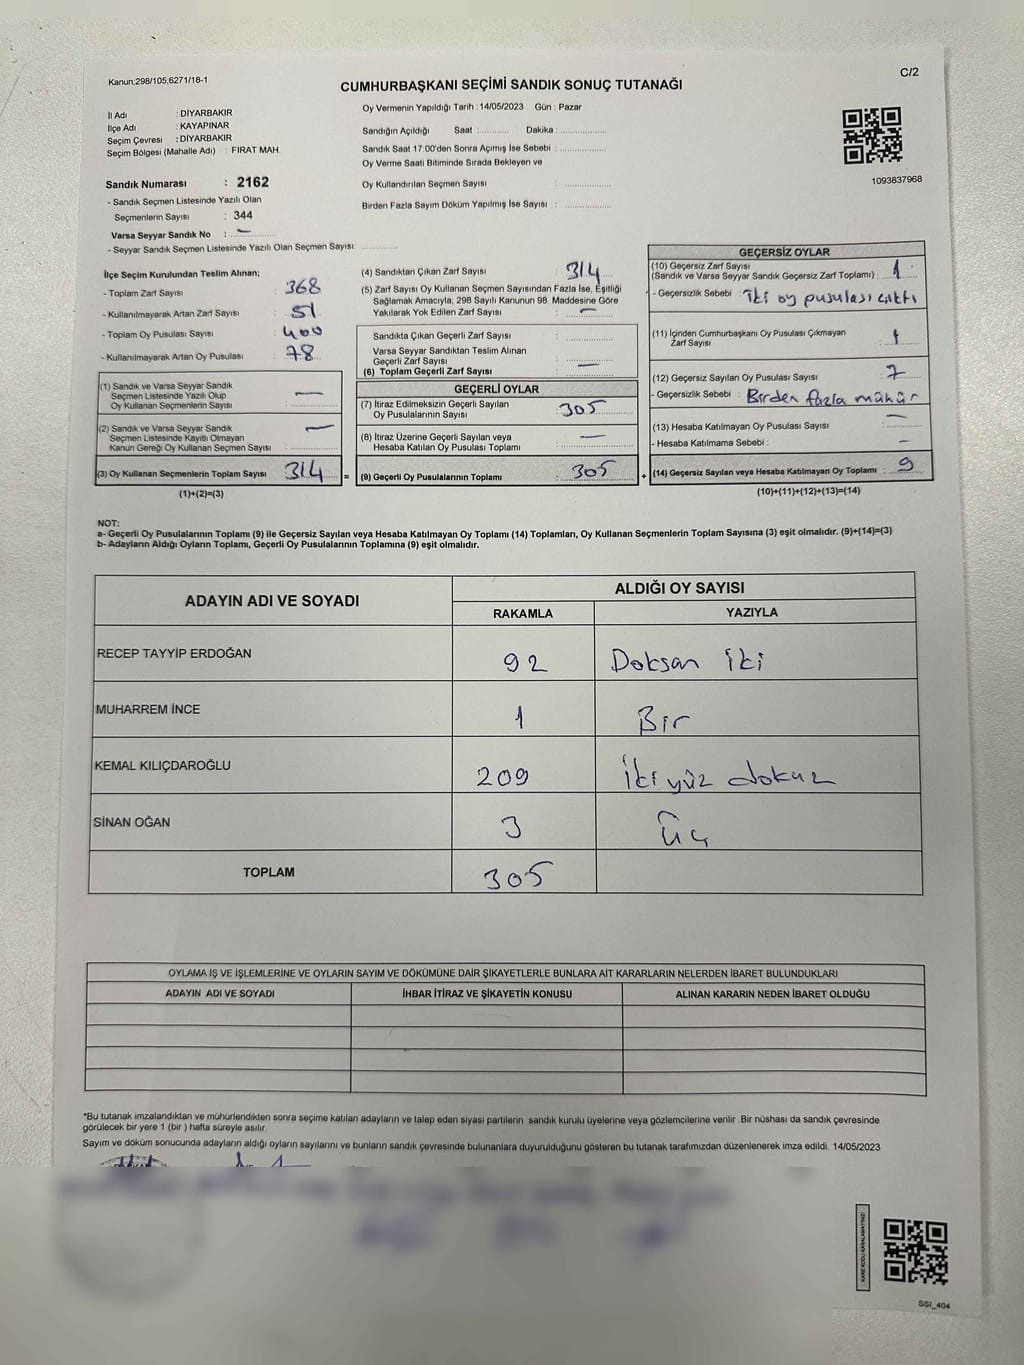 Kanun,298/105,6271/18-1
C/2
CUMHURBAŞKANI SEÇİMİ SANDIK SONUÇ TUTANAĞI
İl Adı : DİYARBAKIR
İlçe Adı : KAYAPINAR
Seçim Çevresi : DİYARBAKIR
Seçim Bölgesi (Mahalle Adı) : FIRAT MAH.
Sandık Numarası : 2162
- Sandık Seçmen Listesinde Yazılı Olan
Seçmenlerin Sayısı : 344
Varsa Seyyar Sandık No : —
- Seyyar Sandık Seçmen Listesinde Yazılı Olan Seçmen Sayısı:
Oy Vermenin Yapıldığı Tarih : 14/05/2023 Gün : Pazar
Sandığın Açıldığı Saat : Dakika :
Sandık Saat 17:00'den Sonra Açımış İse Sebebi :
Oy Verme Saati Bitiminde Sırada Bekleyen ve
Oy Kullandırılan Seçmen Sayısı :
Birden Fazla Sayım Döküm Yapılmış İse Sayısı :
1093837968
İlçe Seçim Kurulundan Teslim Alınan;
- Toplam Zarf Sayısı : 368
- Kullanılmayarak Artan Zarf Sayısı : 51
- Toplam Oy Pusulası Sayısı : 400
- Kullanılmayarak Artan Oy Pusulası : 78
(1) Sandık ve Varsa Seyyar Sandık
Seçmen Listesinde Yazılı Olup
Oy Kullanan Seçmenlerin Sayısı : —
(2) Sandık ve Varsa Seyyar Sandık
Seçmen Listesinde Kayıtlı Olmayan
Kanun Gereği Oy Kullanan Seçmen Sayısı : —
(3) Oy Kullanan Seçmenlerin Toplam Sayısı 314 =
(1)+(2)=(3)
(4) Sandıktan Çıkan Zarf Sayısı : 314
(5) Zarf Sayısı Oy Kullanan Seçmen Sayısından Fazla İse, Eşitliği
Sağlamak Amacıyla, 298 Sayılı Kanunun 98. Maddesine Göre
Yakılarak Yok Edilen Zarf Sayısı : —
Sandıkta Çıkan Geçerli Zarf Sayısı :
Varsa Seyyar Sandıktan Teslim Alınan
Geçerli Zarf Sayısı :
(6) Toplam Geçerli Zarf Sayısı : —
GEÇERLİ OYLAR
(7) İtiraz Edilmeksizin Geçerli Sayılan
Oy Pusulalarının Sayısı : 305
(8) İtiraz Üzerine Geçerli Sayılan veya
Hesaba Katılan Oy Pusulası Toplamı : —
(9) Geçerli Oy Pusulalarının Toplamı : 305 +
GEÇERSİZ OYLAR
(10) Geçersiz Zarf Sayısı
(Sandık ve Varsa Seyyar Sandık Geçersiz Zarf Toplamı) : 1
- Geçersizlik Sebebi : İki oy pusulası çıktı
(11) İçinden Cumhurbaşkanı Oy Pusulası Çıkmayan
Zarf Sayısı : 1
(12) Geçersiz Sayılan Oy Pusulası Sayısı : 7
- Geçersizlik Sebebi : Birden fazla mühür
(13) Hesaba Katılmayan Oy Pusulası Sayısı : —
- Hesaba Katılmama Sebebi : —
(14) Geçersiz Sayılan veya Hesaba Katılmayan Oy Toplamı : 9
(10)+(11)+(12)+(13)=(14)
NOT:
a- Geçerli Oy Pusulalarının Toplamı (9) ile Geçersiz Sayılan veya Hesaba Katılmayan Oy Toplamı (14) Toplamları, Oy Kullanan Seçmenlerin Toplam Sayısına (3) eşit olmalıdır. (9)+(14)=(3)
b- Adayların Aldığı Oyların Toplamı, Geçerli Oy Pusulalarının Toplamına (9) eşit olmalıdır.
ADAYIN ADI VE SOYADI ALDIĞI OY SAYISI
RAKAMLA YAZIYLA
RECEP TAYYİP ERDOĞAN 92 Doksan iki
MUHARREM İNCE 1 Bir
KEMAL KILIÇDAROĞLU 209 İki yüz dokuz
SİNAN OĞAN 3 Üç
TOPLAM 305
OYLAMA İŞ VE İŞLEMLERİNE VE OYLARIN SAYIM VE DÖKÜMÜNE DAİR ŞİKAYETLERLE BUNLARA AİT KARARLARIN NELERDEN İBARET BULUNDUKLARI
ADAYIN ADI VE SOYADI İHBAR İTİRAZ VE ŞİKAYETİN KONUSU ALINAN KARARIN NEDEN İBARET OLDUĞU
*Bu tutanak imzalandıktan ve mühürlendikten sonra seçime katılan adayların ve talep eden siyasi partilerin sandık kurulu üyelerine veya gözlemcilerine verilir .Bir nüshası da sandık çevresinde
görülecek bir yere 1 (bir ) hafta süreyle asılır.
Sayım ve döküm sonucunda adayların aldığı oyların sayılarını ve bunların sandık çevresinde bulunanlara duyurulduğunu gösteren bu tutanak tarafımızdan düzenlenerek imza edildi. 14/05/2023
KARE KODU KARALAMAYINIZ!
SSI_404